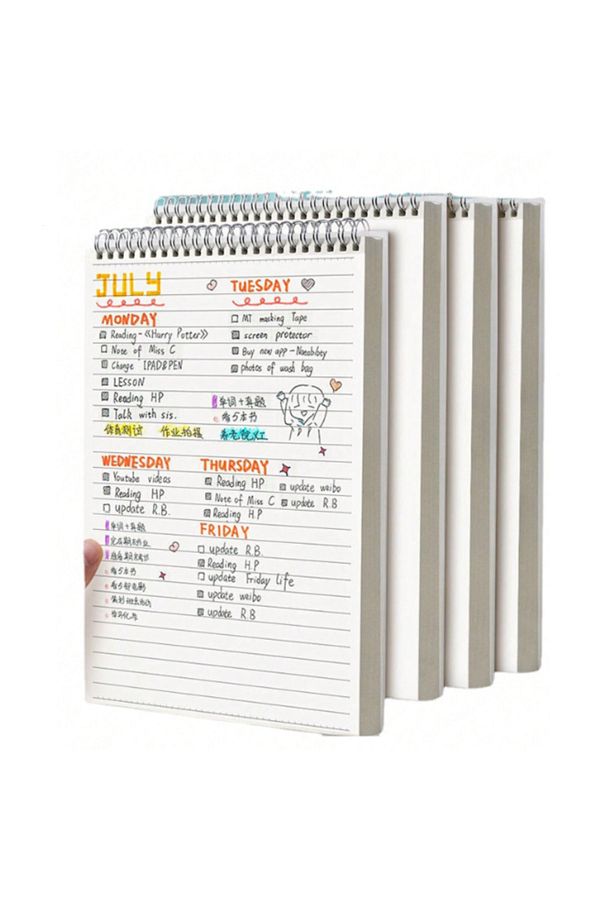 JULY
MONDAY
Reading-《Harry Potter》
Note of Miss C
Change IPAD&PEN
LESSON
Reading HP
Talk with sis.
TUESDAY
MT masking Tape
screen protector
Buy new app-
photos of wash bag
单词+真题
看5本书
作业拍摄
WEDNESDAY
Youtube videos
Reading HP
update R.B.
单词+真题
看5本书
THURSDAY
Reading HP
update weibo
Note of Miss C
update R.B
Reading H.P
FRIDAY
update R.B.
Reading H.P
update Friday life
update weibo
update R.B